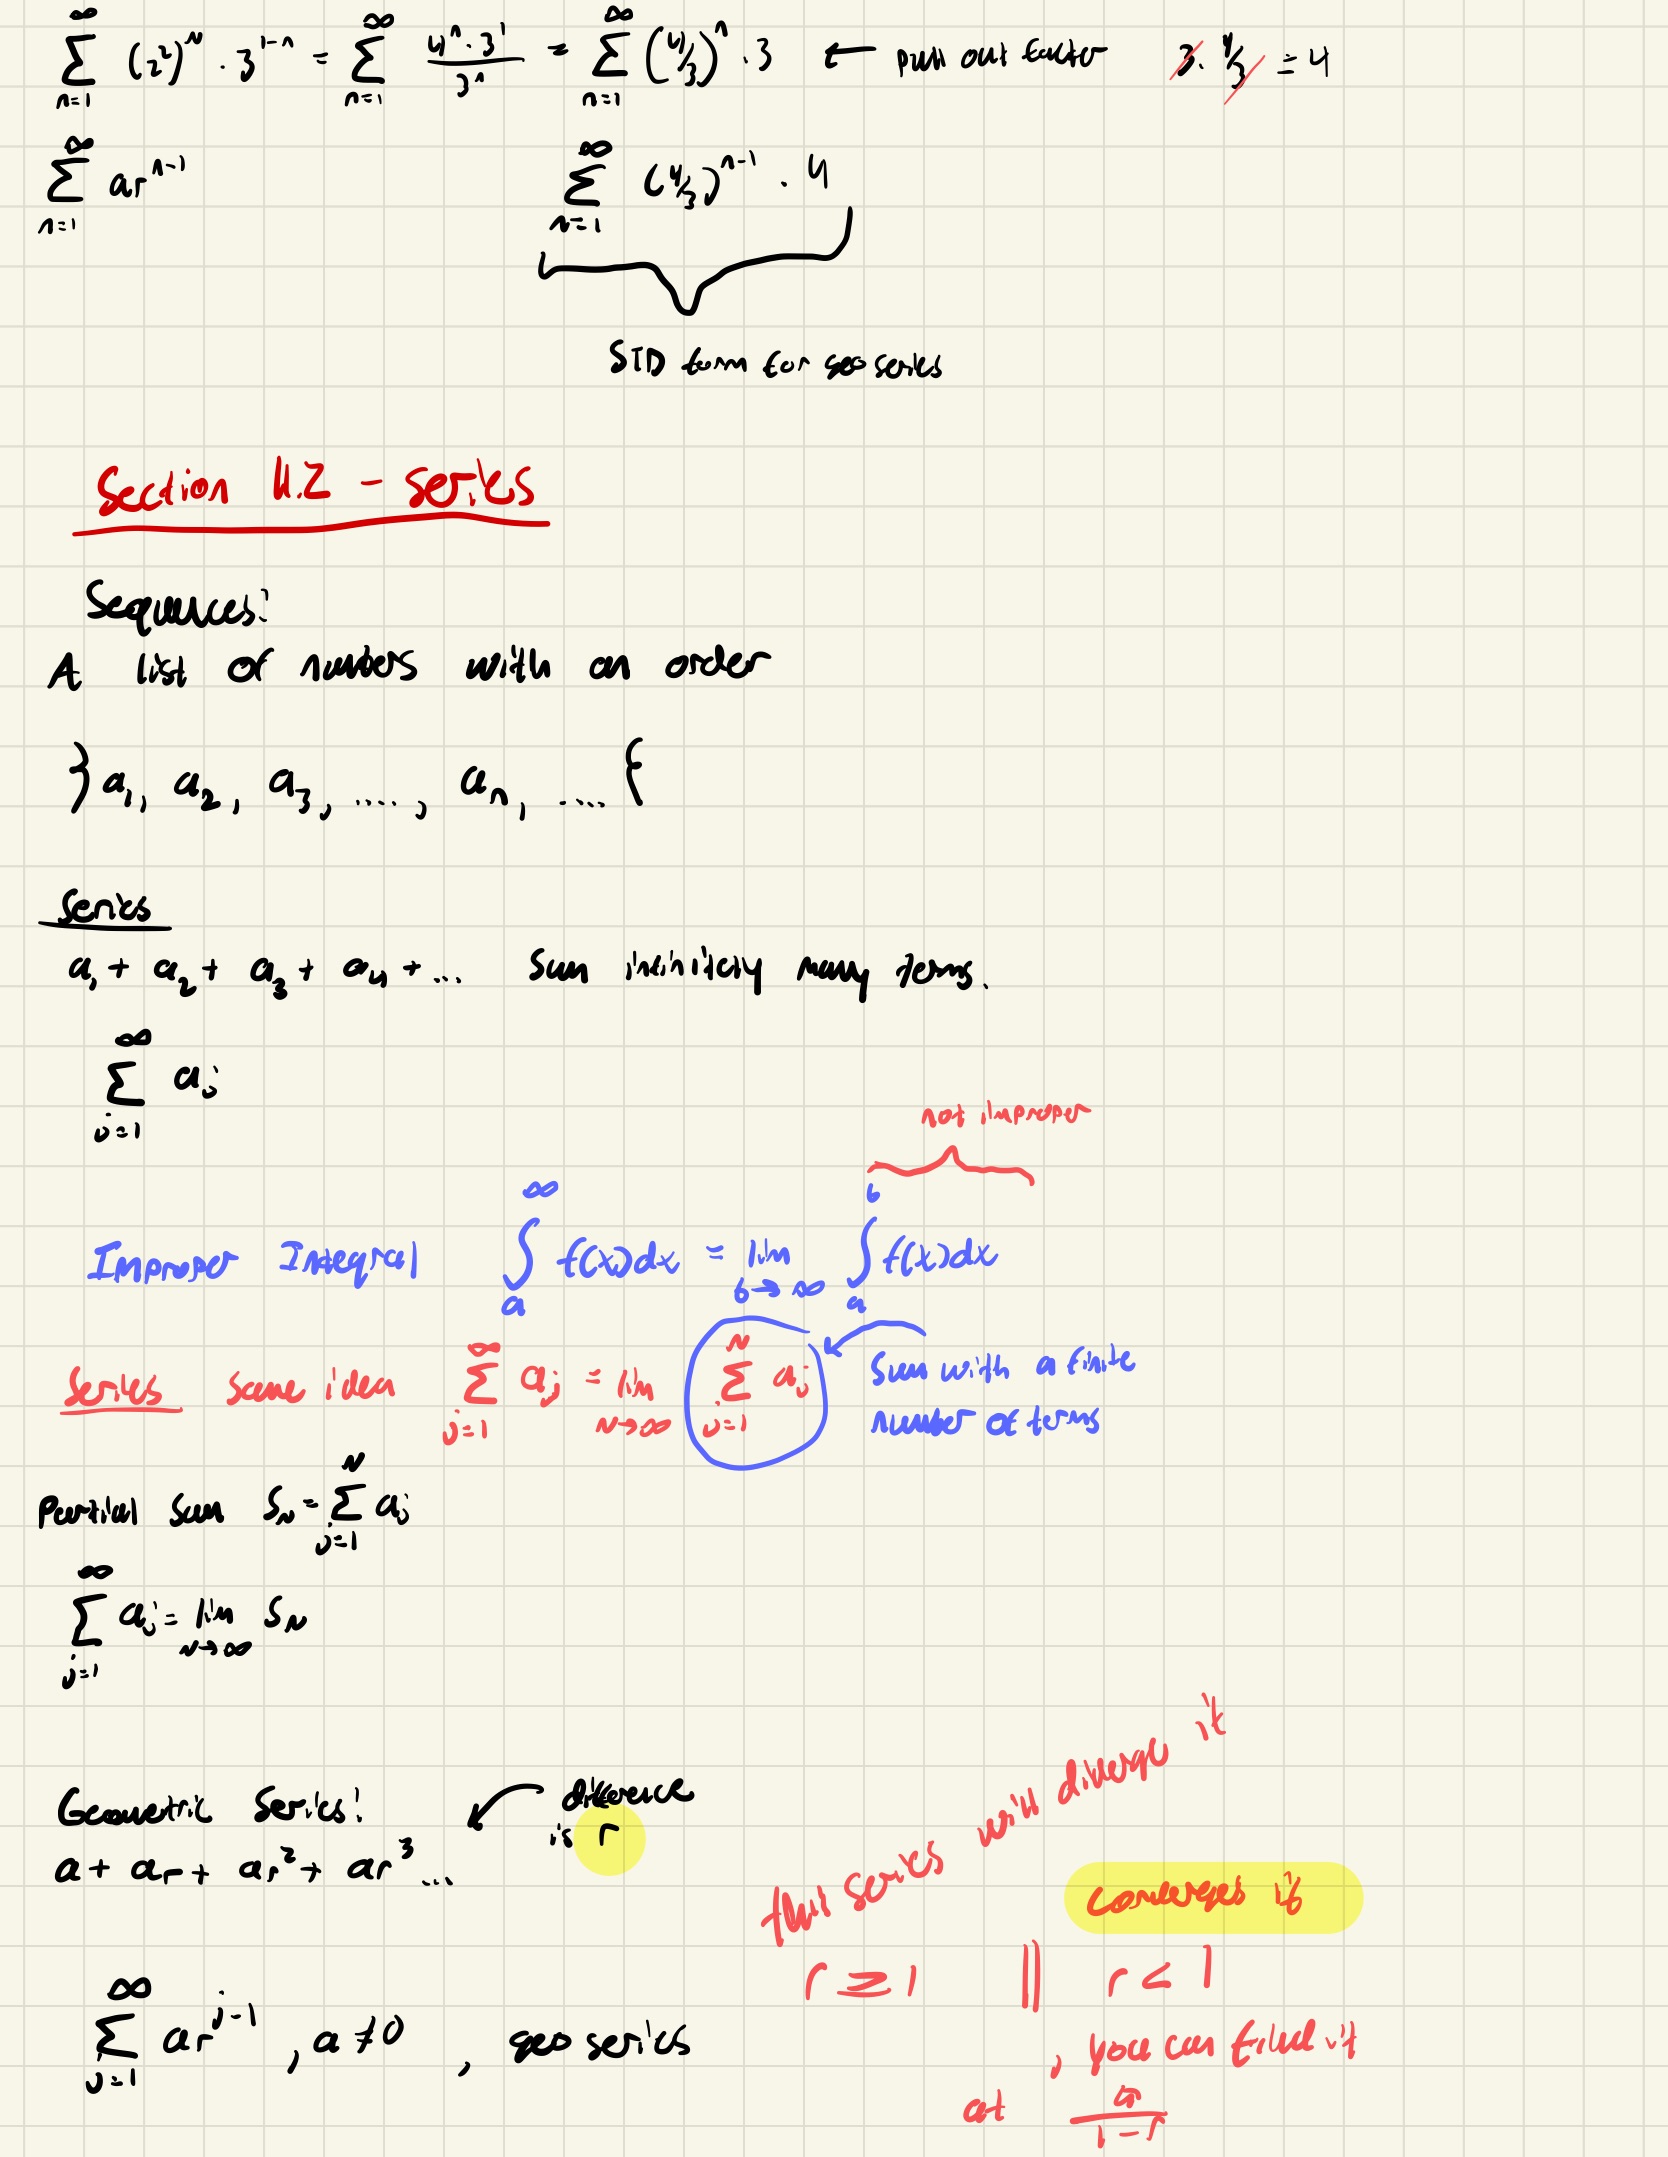 ∞ ∑ n=1 (2²)ⁿ · 3¹⁻ⁿ = ∞ ∑ n=1 4ⁿ · 3¹ / 3ⁿ = ∞ ∑ n=1 (4/3)ⁿ · 3 ← pull out factor 3 · 4/3 = 4
∞ ∑ n=1 arⁿ⁻¹ ∞ ∑ n=1 (4/3)ⁿ⁻¹ · 4
STD form for geo series
Section 11.2 - series
Sequences:
A list of numbers with an order
} a₁, a₂, a₃, ...., aₙ, .... {
Series
a₁ + a₂ + a₃ + a₄ + ... Sum infinitely many terms.
∞ ∑ j=1 aⱼ
not improper
Improper Integral ∞ ∫ a f(x)dx = lim b→∞ b ∫ a f(x)dx
Series same idea ∞ ∑ j=1 aⱼ = lim N→∞ N ∑ j=1 aⱼ
Sum with a finite
number of terms
Partial Sum S_N = N ∑ j=1 aⱼ
∞ ∑ j=1 aⱼ = lim N→∞ S_N
Geometric Series:
difference
is r
a + ar + ar² + ar³ ...
∞ ∑ j=1 arʲ⁻¹ , a ≠ 0 , geo series
this series will diverge if
r ≥ 1
||
converges if
r < 1
, you can find it
at a / 1-r